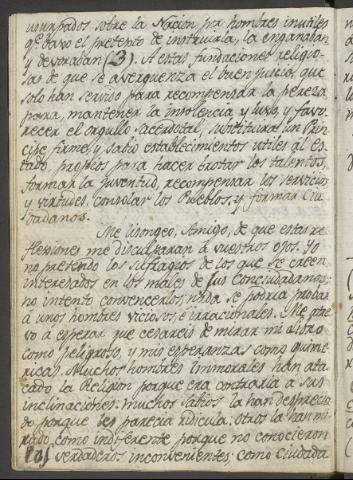 usurpados sobre la Nacion por hombres inutiles
qe. baxo el pretexto de instruirla, la engañaban
y devoraban (3). A estas fundaciones religio-
sas de que se averguenza el buen juicio, que
solo han servido para recompensar la pereza
para, mantener la insolencia y luxo, y favo-
recer el orgullo sacerdotal, substituirá un Prin-
cipe firme y sabio establecimientos utiles al es-
tado, propios para hacer brotar los talentos,
formar la juventud, recompensar los servicios
y virtudes, consolar los Pueblos, y formar Ciu-
dadanos.
Me lisongeo, Amigo, de que estas re-
flexiones me disculparan à vuestros ojos. Yo
no pretendo los sufragios de los que se creen
interesados en los males de sus Conciudadanos;
no intento convencerlos; nada se podria probar
à unos hombres viciosos, è irracionales. Me atre-
vo à esperar que cesareis de mirar mi obra
como peligroso, y mis esperanzas como quime-
ricas. Muchos hombres immorales han ata-
cado la Religion porque era contraria à sus
inclinaciones: muchos sabios la han desprecia-
do porque les parecia ridicula: otros la han mi-
rado como indiferente porque no conocieron
los verdaderos inconvenientes; como Ciudada